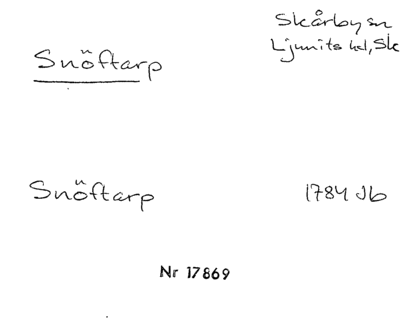 Skårby sn
Ljunits hd, Sk
Snöftarp
Snöftarp
1784 Jb
Nr 17869